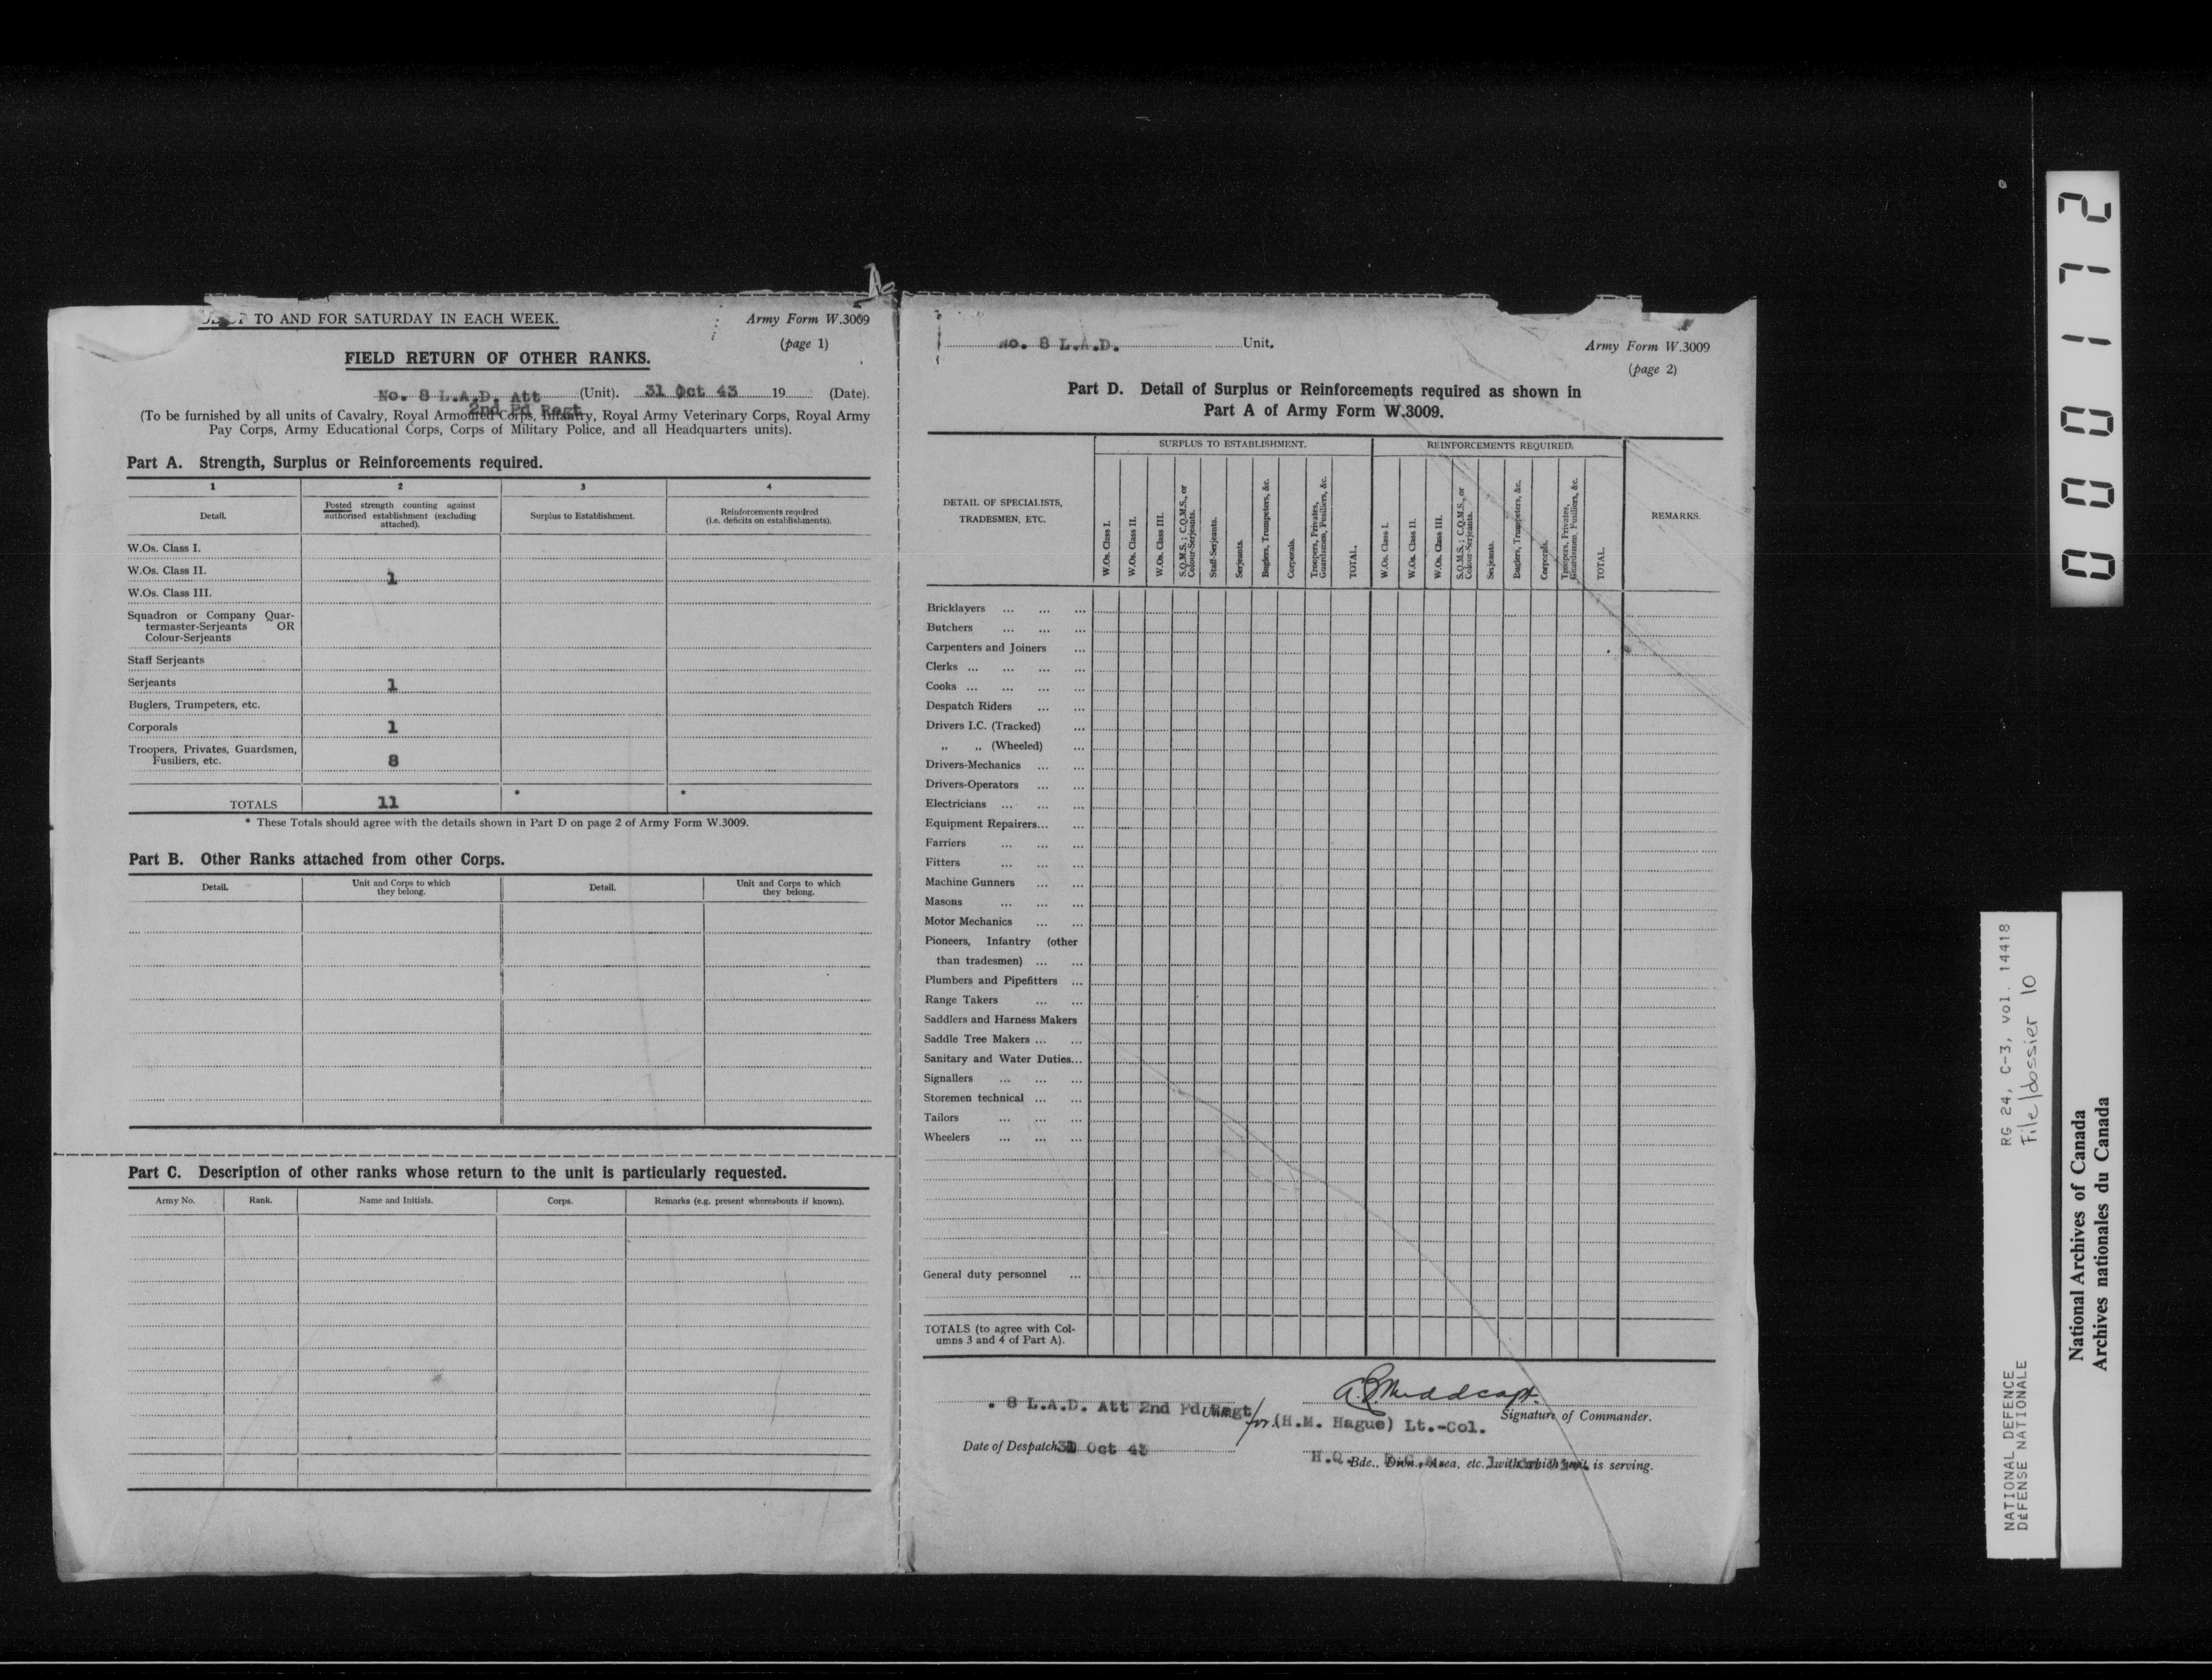 TO AND FOR SATURDAY IN EACH WEEK.
Army Form W.3009
(page 1)
FIELD RETURN OF OTHER RANKS.
No. 8 L.A.D. Att (Unit). 31 Oct 43 19 (Date).
2nd Fd Regt
(To be furnished by all units of Cavalry, Royal Armoured Corps, Infantry, Royal Army Veterinary Corps, Royal Army
Pay Corps, Army Educational Corps, Corps of Military Police, and all Headquarters units).
Part A. Strength, Surplus or Reinforcements required.
1 2 3 4
Detail.
Posted strength counting against
authorised establishment (excluding
attached).
Surplus to Establishment.
Reinforcements required
(i.e. deficits on establishments).
W.Os. Class I.
W.Os. Class II. 1
W.Os. Class III.
Squadron or Company Quar-
termaster-Serjeants OR
Colour-Serjeants
Staff Serjeants
Serjeants 1
Buglers, Trumpeters, etc.
Corporals 1
Troopers, Privates, Guardsmen,
Fusiliers, etc. 8
TOTALS 11 * *
* These Totals should agree with the details shown in Part D on page 2 of Army Form W.3009.
Part B. Other Ranks attached from other Corps.
Detail.
Unit and Corps to which
they belong.
Detail.
Unit and Corps to which
they belong.
Part C. Description of other ranks whose return to the unit is particularly requested.
Army No. Rank. Name and Initials. Corps. Remarks (e.g. present whereabouts if known).
No. 8 L.A.D. Unit.
Army Form W.3009
(page 2)
Part D. Detail of Surplus or Reinforcements required as shown in
Part A of Army Form W.3009.
DETAIL OF SPECIALISTS,
TRADESMEN, ETC.
SURPLUS TO ESTABLISHMENT.
W.Os. Class I.
W.Os. Class II.
W.Os. Class III.
S.Q.M.S.; C.Q.M.S., or
Colour-Serjeants.
Staff-Serjeants.
Serjeants.
Buglers, Trumpeters, &c.
Corporals.
Troopers, Privates,
Guardsmen, Fusiliers, &c.
TOTAL.
REINFORCEMENTS REQUIRED.
W.Os. Class I.
W.Os. Class II.
W.Os. Class III.
S.Q.M.S.; C.Q.M.S., or
Colour-Serjeants.
Serjeants.
Buglers, Trumpeters, &c.
Corporals.
Troopers, Privates,
Guardsmen, Fusiliers, &c.
TOTAL.
REMARKS.
Bricklayers ... ... ...
Butchers ... ... ...
Carpenters and Joiners ...
Clerks ... ... ... ...
Cooks ... ... ... ...
Despatch Riders ... ...
Drivers I.C. (Tracked) ...
„ „ (Wheeled) ...
Drivers-Mechanics ... ...
Drivers-Operators ... ...
Electricians ... ... ...
Equipment Repairers... ...
Farriers ... ... ...
Fitters ... ... ...
Machine Gunners ... ...
Masons ... ... ...
Motor Mechanics ... ...
Pioneers, Infantry (other
than tradesmen) ... ...
Plumbers and Pipefitters ...
Range Takers ... ...
Saddlers and Harness Makers
Saddle Tree Makers ... ...
Sanitary and Water Duties...
Signallers ... ... ...
Storemen technical ... ...
Tailors ... ... ...
Wheelers ... ... ...
General duty personnel ...
TOTALS (to agree with Col-
umns 3 and 4 of Part A).
. 8 L.A.D. Att 2nd Fd Regt
for (H.M. Hague) Lt.-Col.
Signature of Commander.
Date of Despatch 31 Oct 43
H.Q.
Bde., Divn., Area, etc. with which unit is serving.
0000172
RG 24, C-3, vol. 14418
File/dossier 10
NATIONAL DEFENCE
DÉFENSE NATIONALE
National Archives of Canada
Archives nationales du Canada